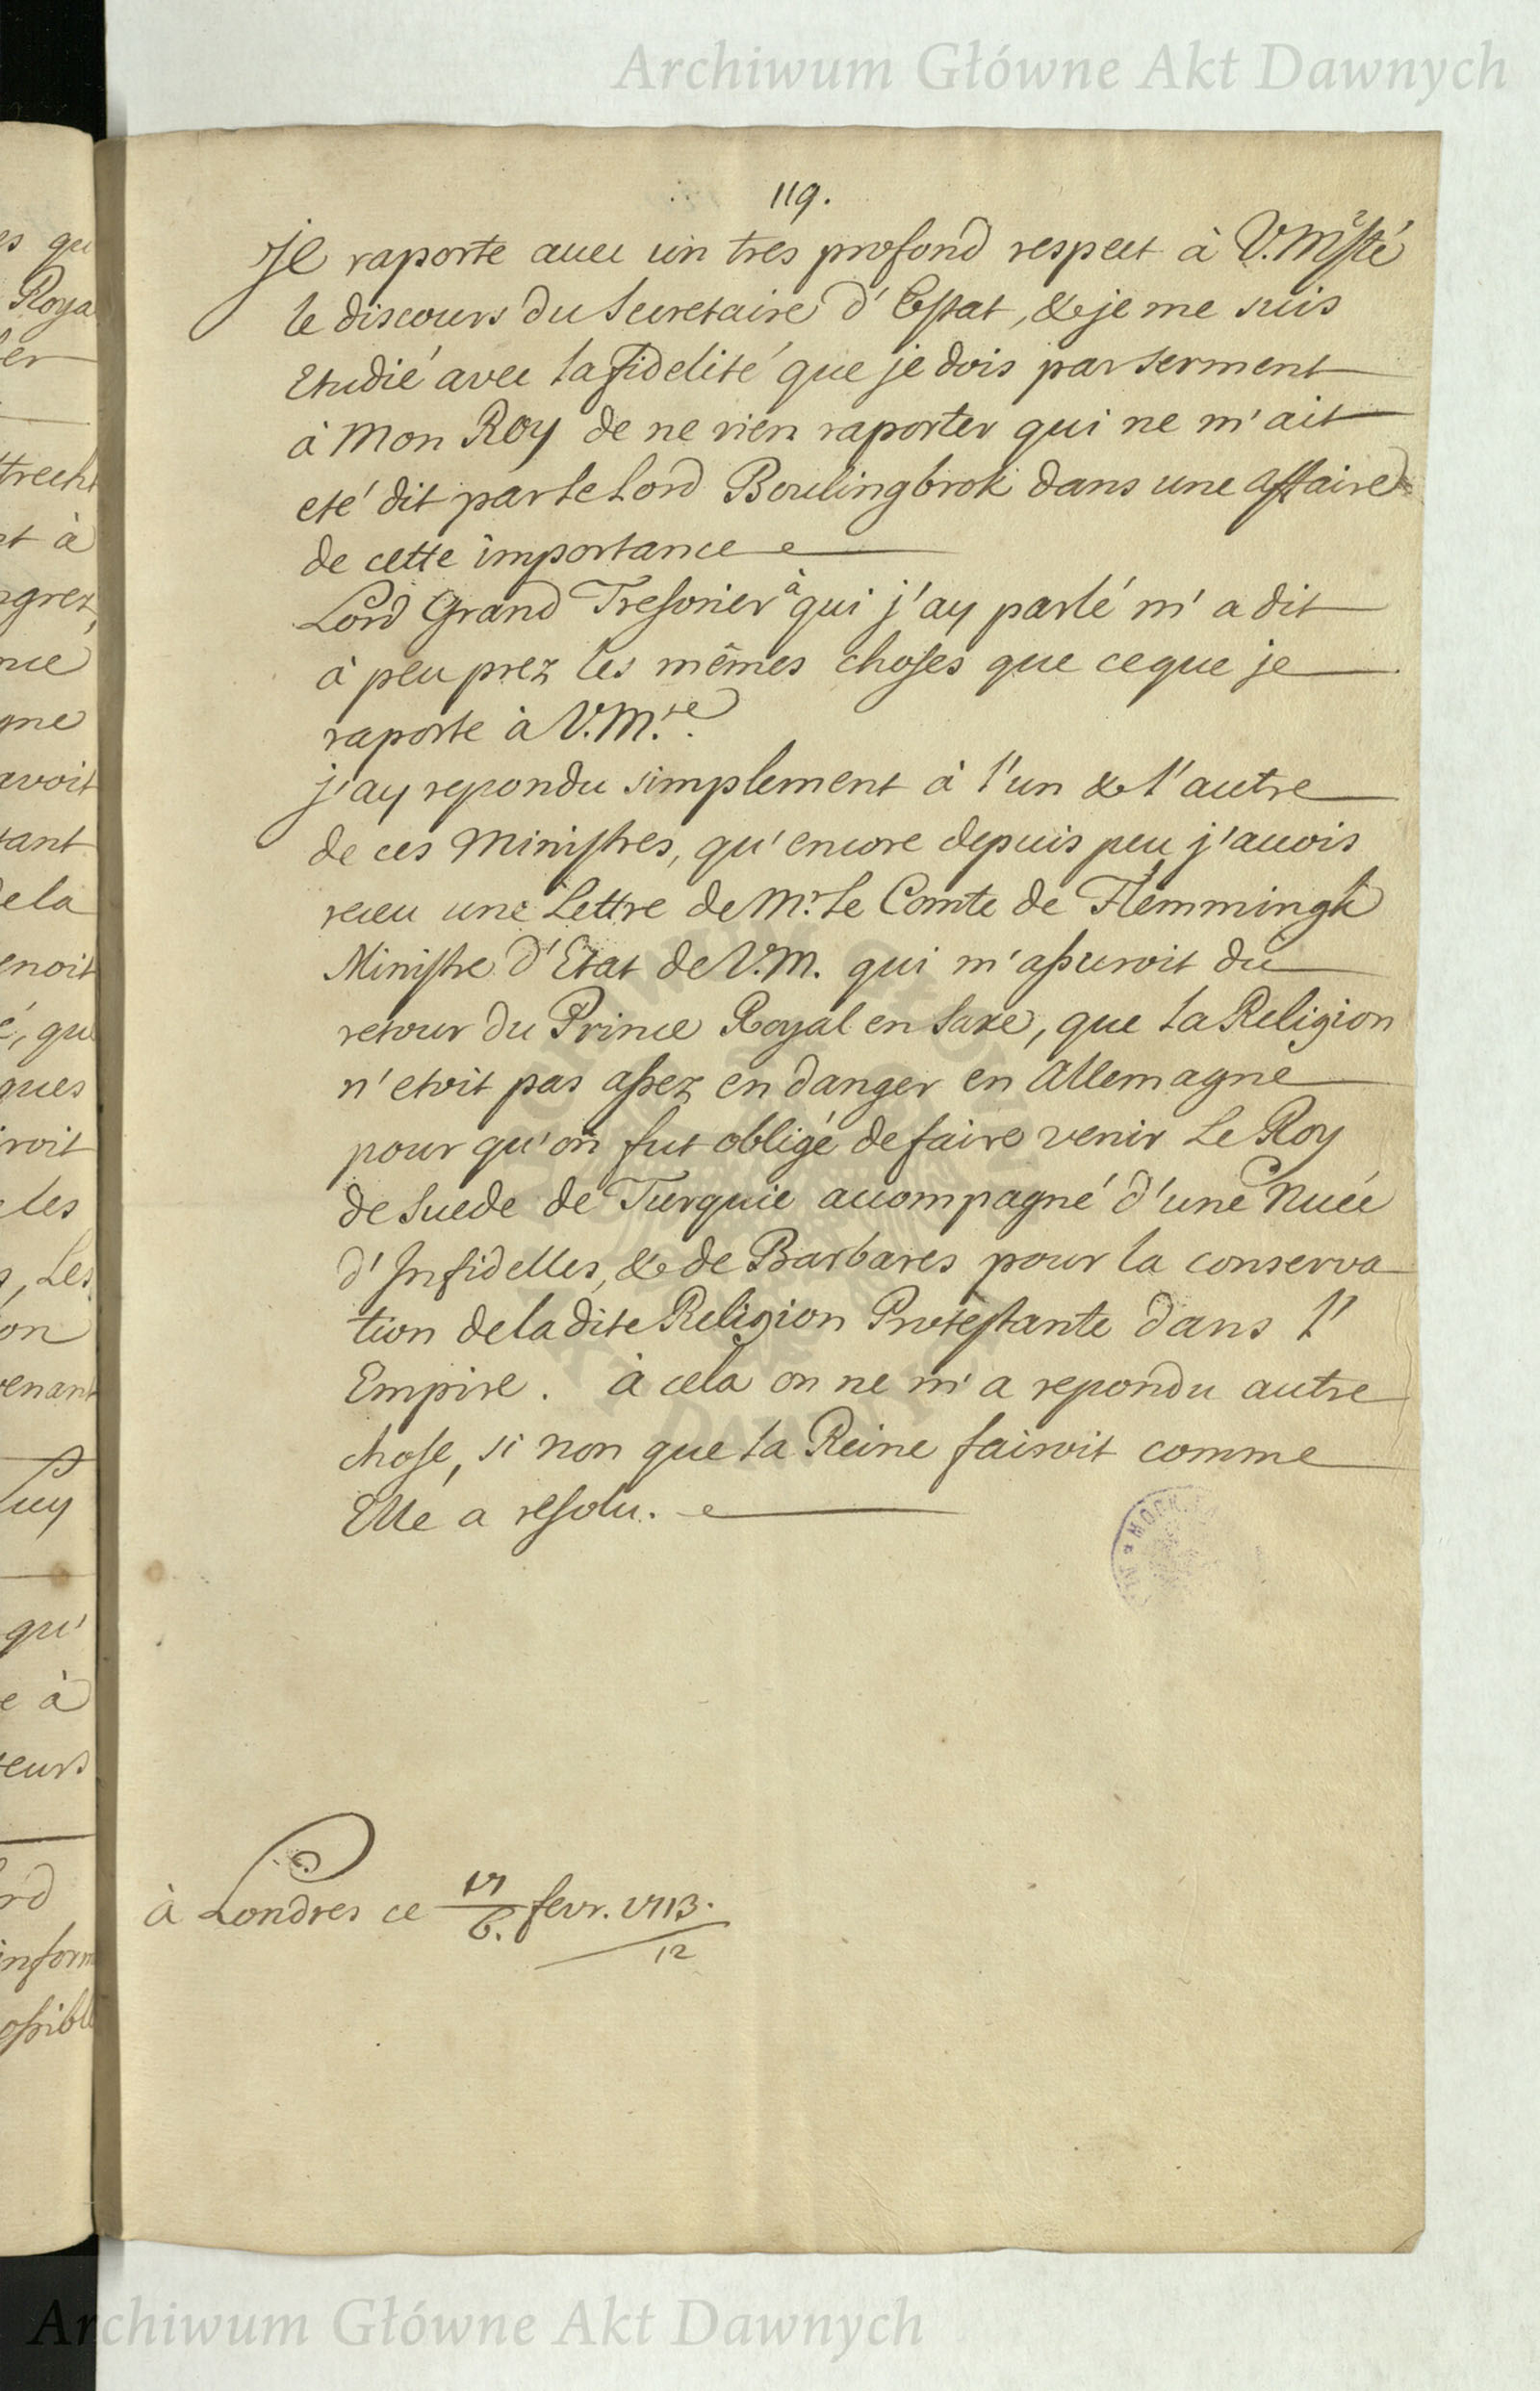 Archiwum Główne Akt Dawnych
119.
Je raporte avec un tres profond respect à V. Msté
le discours du Secretaire d'Estat, & je me suis
Etudié avec la fidelité que je dois par serment
à Mon Roy de ne rien raporter qui ne m'ait
eté dit par le Lord Boulingbrok dans une affaire
de cette importance
Lord Grand Tresorier à qui j'ay parlé m'a dit
à peu prez les mêmes choses que ce que je
raporte à V. M.te
j'ay repondu simplement à l'un & l'autre
de ces Ministres, qu'encore depuis peu j'avois
receu une Lettre de Mr. Le Comte de Flemmingk
Ministre d'Etat de V. M. qui m'assuroit du
retour du Prince Royal en Saxe, que la Religion
n'etoit pas assez en danger en Allemagne
pour qu'on fut obligé de faire venir Le Roy
de Suede de Turquie accompagné d'une Nuée
d'Infidelles, & de Barbares pour la conserva
tion de la dite Religion Protestante dans l'
Empire. à cela on ne m'a repondu autre
chose, si non que la Reine fairoit comme
Elle a resolu.
à Londres ce 17/6. fevr. 1713.
12
Archiwum Główne Akt Dawnych